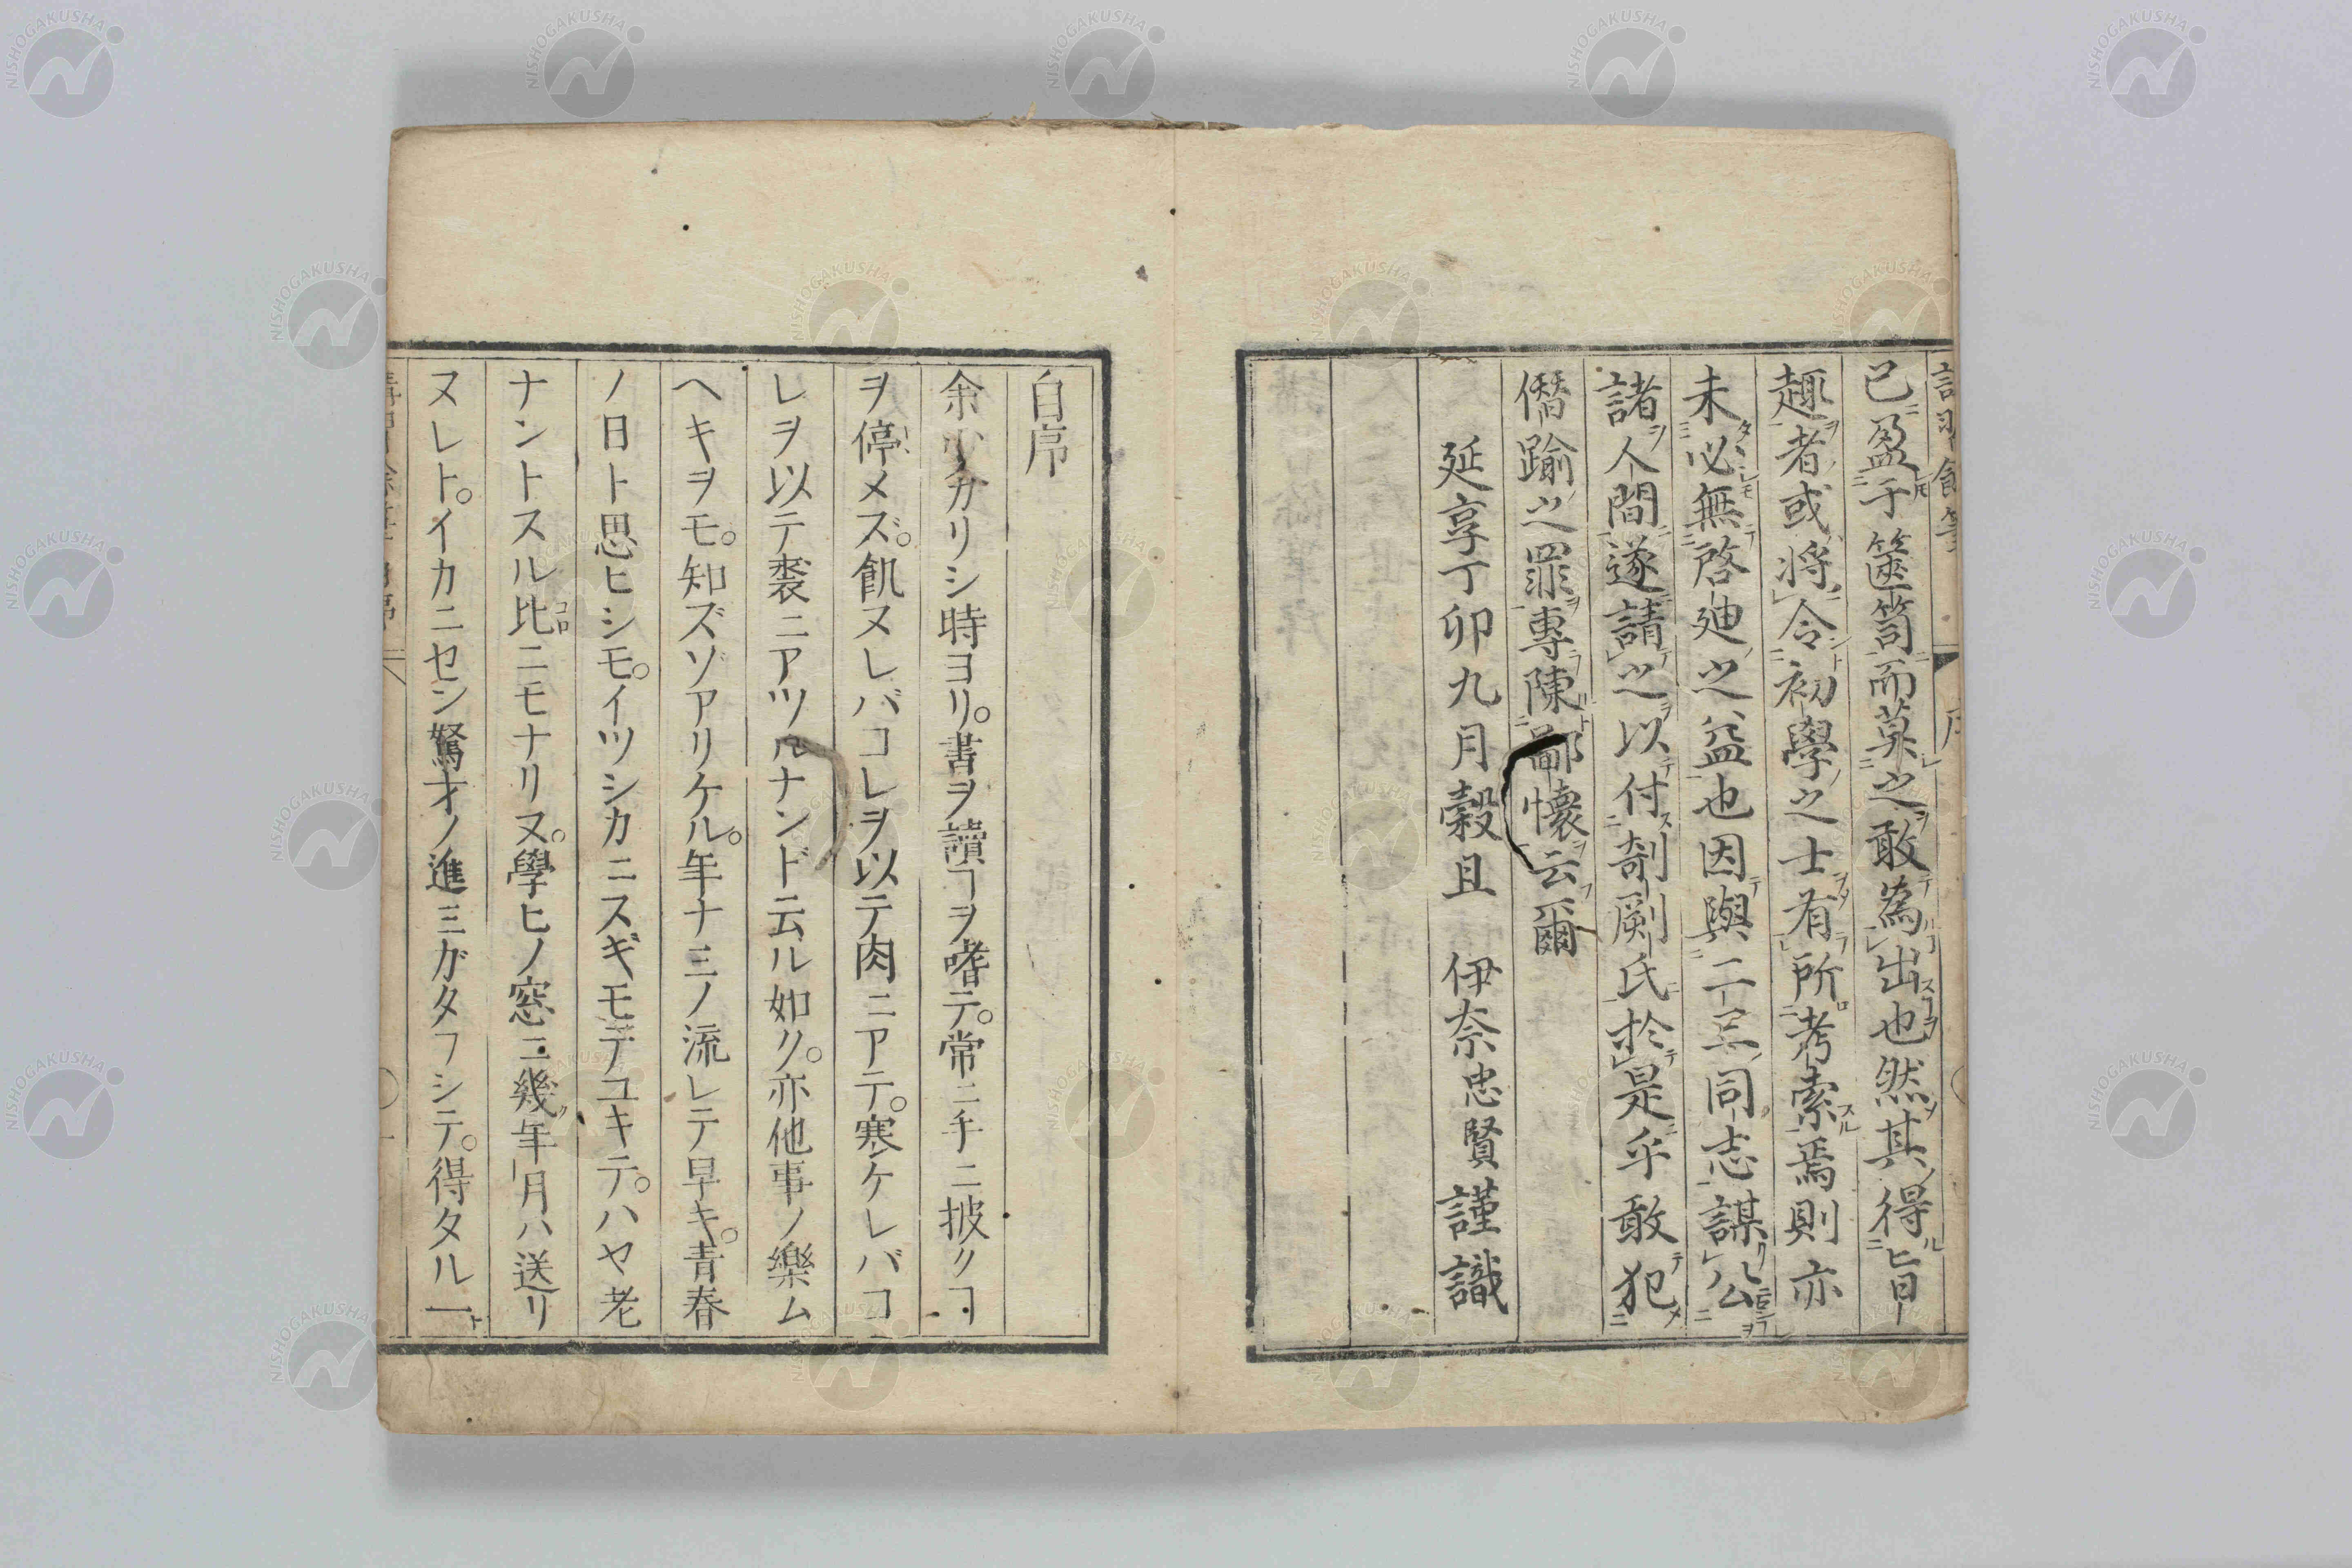 已盈于篋笥而莫之敢為出也然其得旨
趣者或將令初學之士有所考索焉則亦
未必無啓廸之益也因與二三同志謀公
諸人間遂請之以付剞劂氏於是乎敢犯
僭踰之罪專陳鄙懷云爾
延享丁卯九月穀旦 伊奈忠賢謹識
自序
余少カリシ時ヨリ。書ヲ讀ヿヲ嗜テ。常ニ手ニ披クヿ
ヲ停メズ。飢ヌレバコレヲ以テ肉ニアテ。寒ケレバコ
レヲ以テ裘ニアツルナンド云ル如ク。亦他事ノ樂ム
ヘキヲモ。知ズゾアリケル。年ナミノ流レテ早キ。青春
ノ日ト思ヒシモ。イツシカニスギモテユキテ。ハヤ老
ナントスル比ニモナリヌ。學ヒノ窓ニ幾年月ハ送リ
ヌレト。イカニセン駑才ノ進ミガタフシテ。得タル一
NISHOGAKUSHA